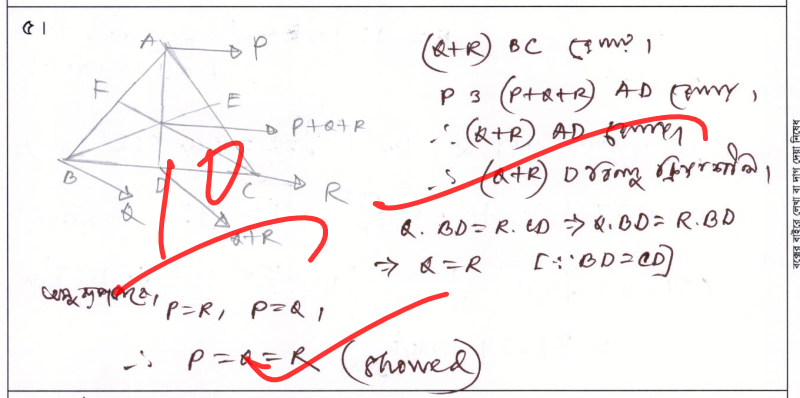 ৫।
A
P
F
E
P+Q+R
B
D
C
R
Q
Q+R
10
(Q+R) BC রেখায়।
P ও (P+Q+R) AD রেখায়,
∴ (Q+R) AD রেখায়।
∴ (Q+R) D বিন্দু ক্রিয়াশীল।
Q. BD = R. CD ⇒ Q.BD = R.BD
⇒ Q = R [∵ BD = CD]
অনুরূপভাবে, P=R, P=Q,
∴ P = Q = R (showed)
বক্সের বাইরে লেখা বা দাগ দেয়া নিষেধ